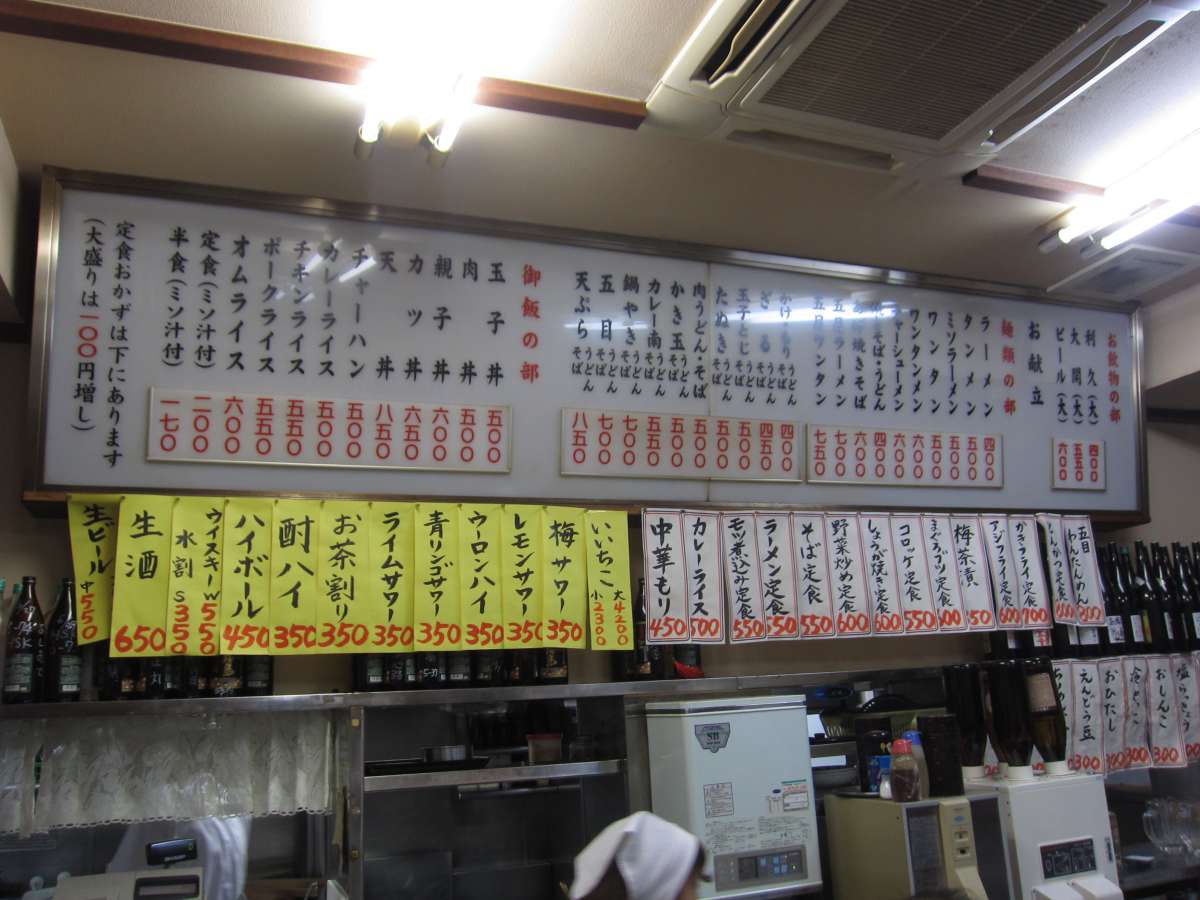 お飲物の部
利久(大) 四〇〇
大関(大) 五五〇
ビール(大) 六〇〇
お献立
麺類の部
ラーメン 四〇〇
タンメン 五〇〇
ミソラーメン 五五〇
ワンタン 五〇〇
ワンタンメン 六〇〇
チャーシューメン 六〇〇
そば・うどん
焼きそば
五目ラーメン 七〇〇
五目ワンタン 七五〇
かけ・もり うどんそば 四〇〇
ざる うどんそば 四五〇
玉子とじ うどんそば 五〇〇
たぬき うどんそば 五〇〇
肉うどん・そば
かき玉 うどんそば
カレー南 うどんそば 五五〇
鍋やき うどん 七〇〇
五目 うどんそば 七〇〇
天ぷら うどんそば 八五〇
御飯の部
玉子丼 五〇〇
肉丼 五〇〇
親子丼 六〇〇
カツ丼 六五〇
天丼 八五〇
チャーハン 五〇〇
カレーライス 五〇〇
チキンライス 五五〇
ポークライス 五五〇
オムライス 六〇〇
定食(ミソ汁付) 二〇〇
半食(ミソ汁付) 一七〇
定食おかずは下にあります
(大盛りは一〇〇円増し)
五目わんたんめん
かつ定食
かきフライ定食 700
アジフライ定食 600
梅茶漬
まぐろブツ定食
コロッケ定食 550
しょうが焼き定食 600
野菜炒め定食 600
そば定食 550
ラーメン定食 550
モツ煮込み定食 550
カレーライス 500
中華もり 450
いいちこ 大4200 小2300
梅サワー 350
レモンサワー 350
ウーロンハイ 350
青リンゴサワー 350
ライムサワー 350
お茶割り 350
酎ハイ 350
ハイボール 450
ウイスキーW 550
水割S 350
生酒 650
生ビール 中550
おしんこ 300
おひたし 300
えんどう豆 300
SHARP